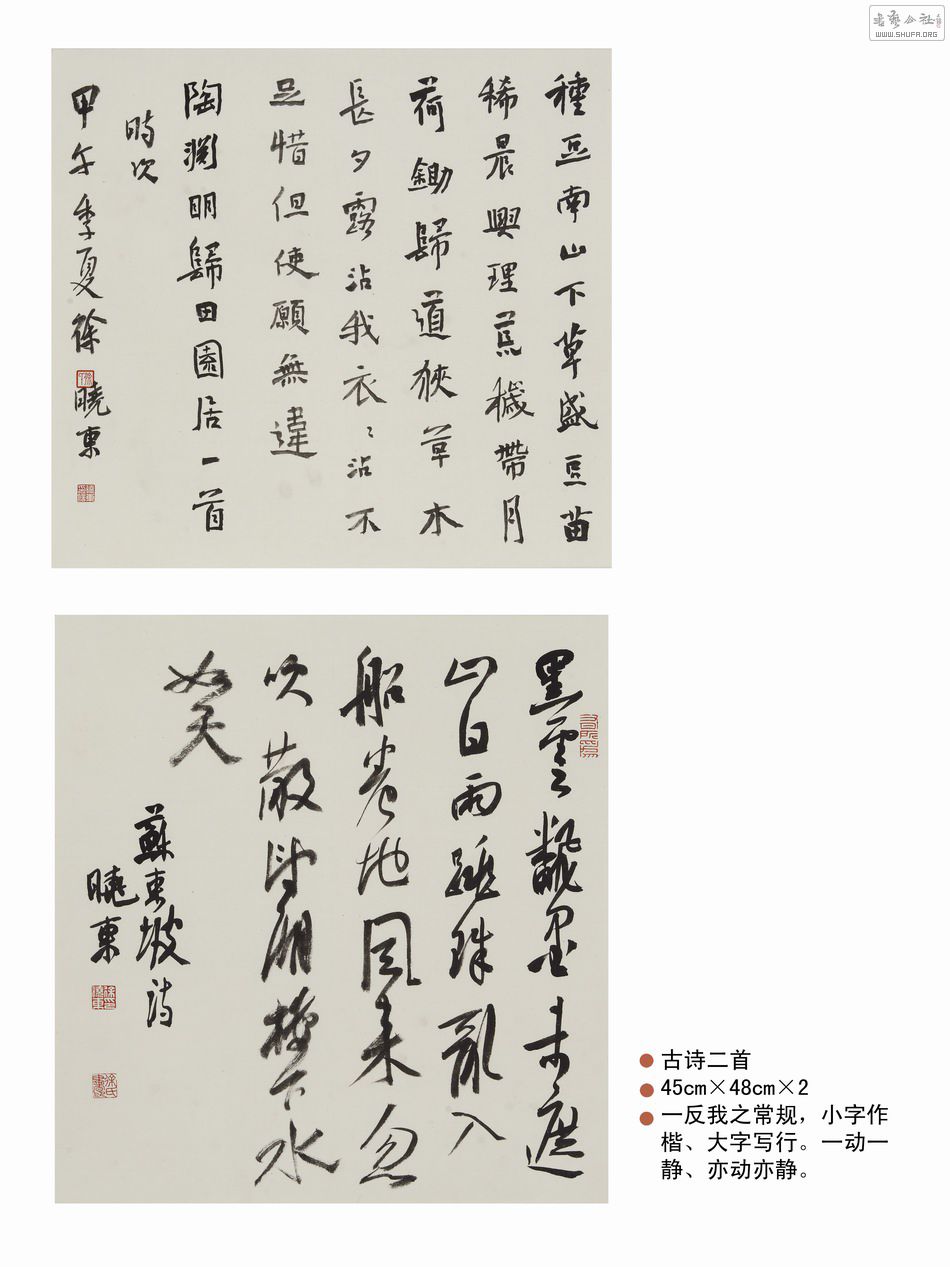 書藝公社
WWW.SHUFA.ORG
種豆南山下草盛豆苗
稀晨興理荒穢帶月
荷鋤歸道狹草木
長夕露沾我衣〻沾不
足惜但使願無違
陶淵明歸田園居一首
時次
甲午季夏徐曉東
黑雲翻墨未遮
山白雨跳珠亂入
船卷地風來忽
吹散望湖樓下水
如天
蘇東坡詩
曉東
古诗二首
45cm×48cm×2
一反我之常规，小字作
楷、大字写行。一动一
静、亦动亦静。